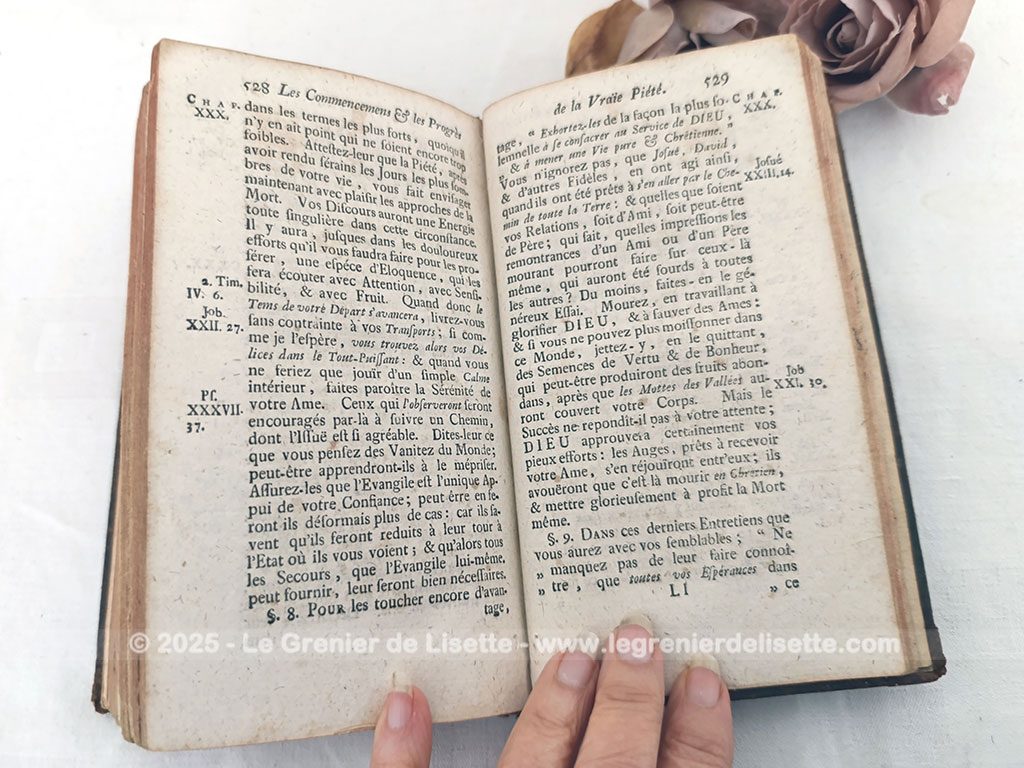 528 Les Commencemens & les Progrès
CHAP.
XXX.
dans les termes les plus forts, quoiqu'il
n'y en ait point qui ne soient encore trop
foibles. Attestez-leur que la Piété, après
avoir rendu sérains les Jours les plus som-
bres de votre vie, vous fait envisager
maintenant avec plaisir les approches de la
Mort. Vos Discours auront une Energie
toute singulière dans cette circonstance.
Il y aura, jusques dans les douloureux
efforts qu'il vous faudra faire pour les pro-
férer, une espéce d'Eloquence, qui les
fera écouter avec Attention, avec Sensi-
2. Tim.
IV. 6.
bilité, & avec Fruit. Quand donc le
Tems de votré Départ s'avancera, livrez-vous
Job.
XXII. 27.
sans contrainte à vos Transports; si com-
me je l'espère, vous trouvez alors vos Dé-
lices dans le Tout-Puissant: & quand vous
ne feriez que jouïr d'un simple Calme
intérieur, faites paroître la Sérénité de
Ps.
XXXVII.
37.
votre Ame. Ceux qui l'observeront seront
encouragés par-là à suivre un Chemin,
dont l'Issuë est si agréable. Dites-leur ce
que vous pensez des Vanitez du Monde;
peut-être apprendront-ils à le mépriser.
Assurez-les que l'Evangile est l'unique Ap-
pui de votre Confiance; peut être en fe-
ront ils désormais plus de cas: car ils sa-
vent qu'ils seront reduits à leur tour à
l'Etat où ils vous voient; & qu'alors tous
les Secours, que l'Evangile lui-même,
peut fournir, leur seront bien nécessaires.
§. 8. POUR les toucher encore d'avan-
tage,
de la Vraïe Piété. 529
CHAP.
XXX.
tage, “ Exhortez-les de la façon la plus so-
lemnelle à se consacrer au Service de DIEU,
„ & à mener une Vie pure & Chrétienne. ”
Vous n'ignorez pas, que Josué, David,
& d'autres Fidèles, en ont agi ainsi,
Josué
XXIII, 14.
quand ils ont été prêts à s'en aller par le Che-
min de toute la Terre: & quelles que soient
vos Relations, soit d'Ami, soit peut-être
de Père; qui sait, quelles impressions les
remontrances d'un Ami ou d'un Père
mourant pourront faire sur ceux-là
même, qui auront été sourds à toutes
les autres? Du moins, faites-en le gé-
néreux Essai. Mourez, en travaillant à
glorifier DIEU, & à sauver des Ames:
& si vous ne pouvez plus moissonner dans
ce Monde, jettez-y, en le quittant,
des Semences de Vertu & de Bonheur,
qui peut-être produiront des fruits abon-
Job
XXI. 30.
dans, après que les Mottes des Vallées au-
ront couvert votre Corps. Mais le
Succès ne repondit-il pas à votre attente;
DIEU approuvera certainement vos
pieux efforts: les Anges, prêts à recevoir
votre Ame, s'en réjouïront entr'eux; ils
avouëront que c'est là mourir en Chrétien,
& mettre glorieusement à profit la Mort
même.
§. 9. DANS ces derniers Entretiens que
vous aurez avec vos semblables; “ Ne
„ manquez pas de leur faire connoî-
„ tre, que toutes vos Espérances dans
Ll
„ ce
© 2025 - Le Grenier de Lisette - www.legrenierdelisette.com